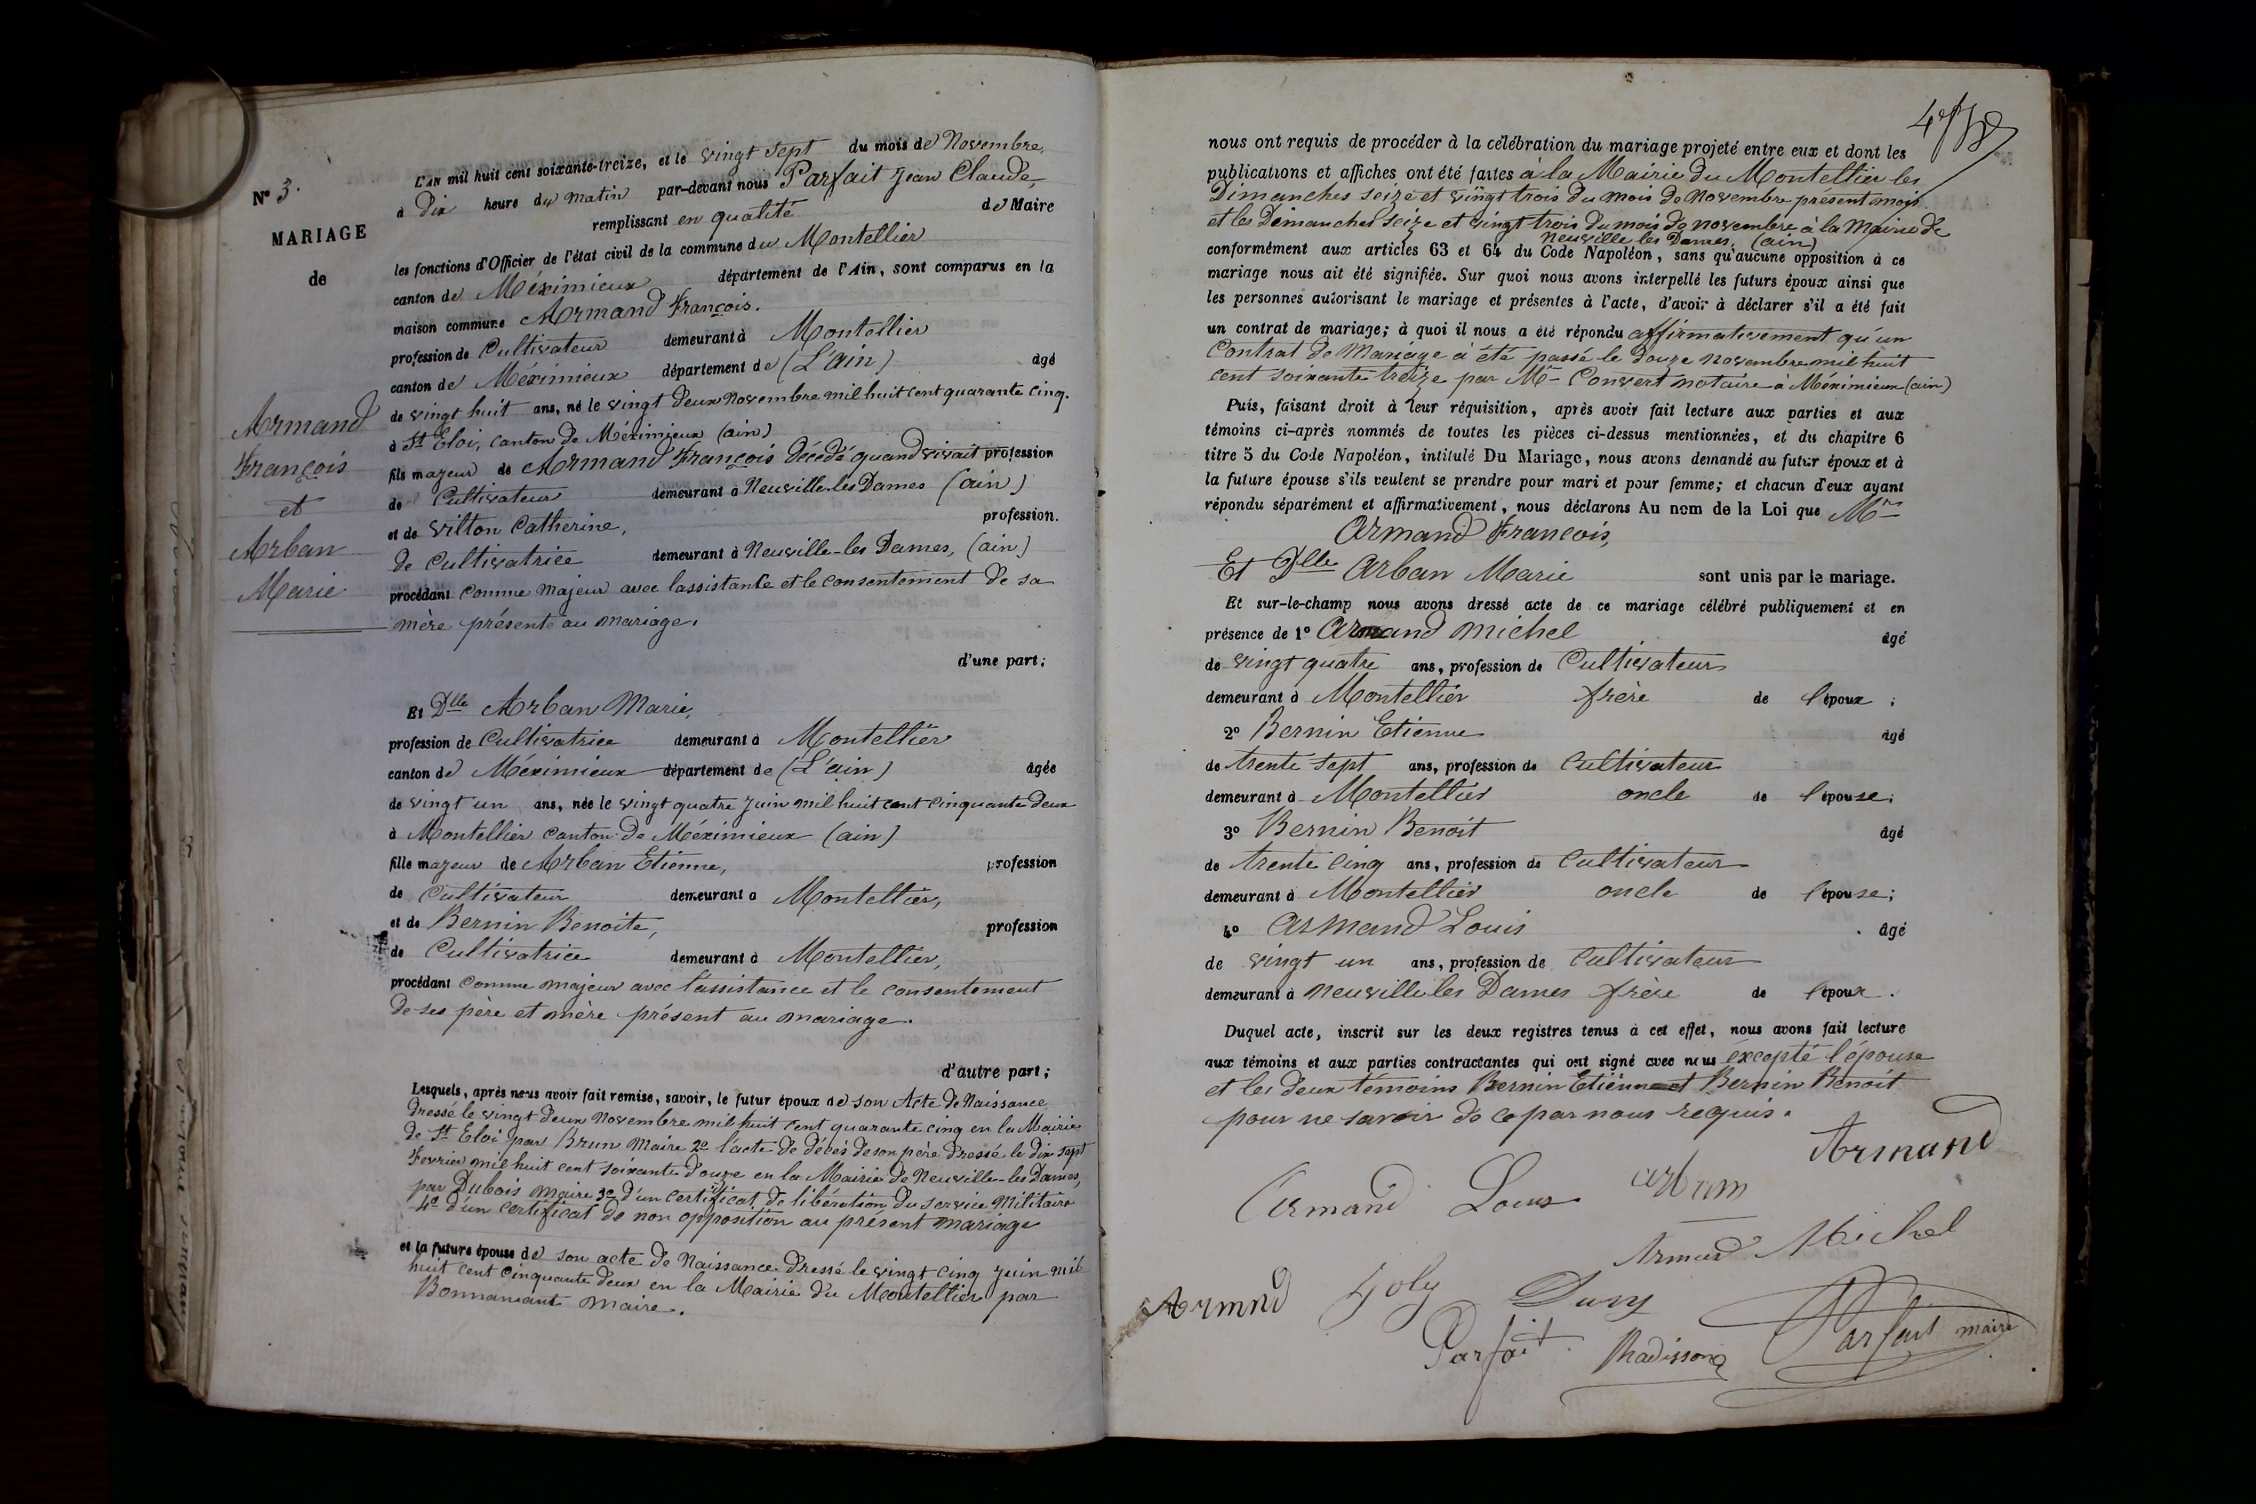 N° 3.
MARIAGE
de
Armand
François
et
Arban
Marie
L'AN mil huit cent soixante-treize, et le vingt sept du mois de Novembre,
à dix heure du matin par-devant nous Parfait Jean Claude,
remplissant en qualité de Maire
les fonctions d'Officier de l'état civil de la commune du Montellier
canton de Méximieux département de l'Ain, sont comparus en la
maison commune Armand François.
profession de Cultivateur demeurant à Montellier
canton de Méximieux département de (L'ain) âgé
de vingt huit ans, né le vingt deux Novembre mil huit cent quarante cinq.
à St Eloi, canton de Méximieux (ain)
fils majeur de Armand François décédé quand vivait profession
de Cultivateur demeurant à Neuville-les Dames (ain)
et de Vilton Catherine, profession.
de Cultivatrice demeurant à Neuville-les Dames, (ain)
procédant comme majeur avec l'assistance et le consentement de sa
mère présente au mariage.
d'une part;
Et Dlle Arban Marie,
profession de Cultivatrice demeurant à Montellier
canton de Méximieux département de (L'ain) âgée
de vingt un ans, née le vingt quatre Juin mil huit cent cinquante deux
à Montellier canton de Méximieux (ain)
fille majeur de Arban Etienne, profession
de Cultivateur demeurant à Montellier,
et de Bernin Benoite, profession
de Cultivatrice demeurant à Montellier,
procédant comme majeur avec l'assistance et le consentement
de ses père et mère présent au mariage.
d'autre part;
Lesquels, après nous avoir fait remise, savoir, le futur époux de son Acte de Naissance
dressé le vingt deux Novembre mil huit cent quarante cinq en la Mairie
de St Eloi par Brun Maire 2º l'acte de décès de son père dressé le dix sept
Fevrier mil huit cent soixante douze en la Mairie de Neuville-les Dames,
par Dubois Maire 3º d'un certificat de libération du service Militaire
4º d'un certificat de non opposition au présent mariage
et la future épouse de son acte de Naissance dressé le vingt cinq Juin mil
huit cent cinquante deux en la Mairie du Montellier par
Bonnamant maire.
nous ont requis de procéder à la célébration du mariage projeté entre eux et dont les
publications et affiches ont été faites à la Mairie du Montellier les
Dimanches seize et vingt trois du mois de Novembre présent mois
et les Dimanches seize et vingt trois du mois de novembre à la Mairie de
Neuville les Dames, (ain)
conformément aux articles 63 et 64 du Code Napoléon, sans qu'aucune opposition à ce
mariage nous ait été signifiée. Sur quoi nous avons interpellé les futurs époux ainsi que
les personnes autorisant le mariage et présentes à l'acte, d'avoir à déclarer s'il a été fait
un contrat de mariage; à quoi il nous a été répondu affirmativement qu'un
Contrat de Mariage a été passé le douze novembre mil huit
cent soixante treize par Me Convert notaire à Méximieux (ain)
Puis, faisant droit à leur réquisition, après avoir fait lecture aux parties et aux
témoins ci-après nommés de toutes les pièces ci-dessus mentionnées, et du chapitre 6
titre 5 du Code Napoléon, intitulé Du Mariage, nous avons demandé au futur époux et à
la future épouse s'ils veulent se prendre pour mari et pour femme; et chacun d'eux ayant
répondu séparément et affirmativement, nous déclarons Au nom de la Loi que Mr
Armand Francois,
Et Dlle Arban Marie sont unis par le mariage.
Et sur-le-champ nous avons dressé acte de ce mariage célébré publiquement et en
présence de 1º Armand Michel âgé
de vingt quatre ans, profession de Cultivateur
demeurant à Montellier frère de l'époux ;
2º Bernin Etienne âgé
de trente sept ans, profession de Cultivateur
demeurant à Montellier oncle de l'épouse;
3º Bernin Benoit âgé
de trente cinq ans, profession de Cultivateur
demeurant à Montellier oncle de l'épouse;
4º Armand Louis âgé
de vingt un ans, profession de Cultivateur
demeurant à Neuville les Dames frère de l'époux.
Duquel acte, inscrit sur les deux registres tenus à cet effet, nous avons fait lecture
aux témoins et aux parties contractantes qui ont signé avec nous éxcepté l'épouse
et les deux témoins Bernin Etienne et Bernin Benoit
pour ne savoir de ce par nous requis.
Armand
Armand Louis Arban
Armand Michel
Armnd Joly Dury
Parfait Radisson Parfait maire